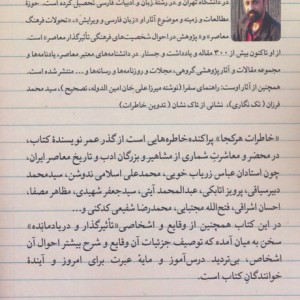 در دانشگاه تهران و در رشته زبان و ادبیات فارسی تحصیل کرده است. حوزهٔ
مطالعات و زمینه و موضوع آثار او «زبان فارسی و ویرایش»، «تحولات فرهنگی
معاصر» و «پژوهش در احوال شخصیت‌های فرهنگی تأثیرگذار معاصر» است.
از او تاکنون بیش از ۳۰۰ مقاله و یادداشت و جستار در دانشنامه‌های معتبر معاصر، یادنامه‌ها و
مجموعه مقالات و آثار پژوهشی گروهی، مجلات و روزنامه‌ها و رسانه‌ها و ... منتشر شده است.
همچنین از آثار اوست: راهنمای سفرا (نوشته میرزا علی خان امین الدوله، تصحیح)، سید محمد
فرزان (تک نگاری)، نشانی از تاک نشان (تدوین خاطرات)
«خاطرات هرکجا» پراکنده خاطره‌هایی است از گذر عمر نویسندهٔ کتاب،
در محضر و معاشرت شماری از مشاهیر و بزرگان ادب و تاریخ معاصر ایران،
چون استادان عباس زریاب خویی، محمدعلی اسلامی ندوشن، سیدمحمد
دبیرسیاقی، پرویز اتابکی، عبدالمحمد آیتی، سیدجعفر شهیدی، مظاهر مصفا،
احسان اشراقی، فتح‌الله مجتبایی، محمدرضا شفیعی کدکنی و...
در این کتاب همچنین از وقایع و اشخاصی «تأثیرگذار و دریادمانده»
سخن به میان آمده که توصیف جزئیات آن وقایع و شرح بیشتر احوال آن
اشخاص، بی‌تردید درس‌آموز و مایهٔ عبرت برای امروز و آیندهٔ
خوانندگان کتاب است.